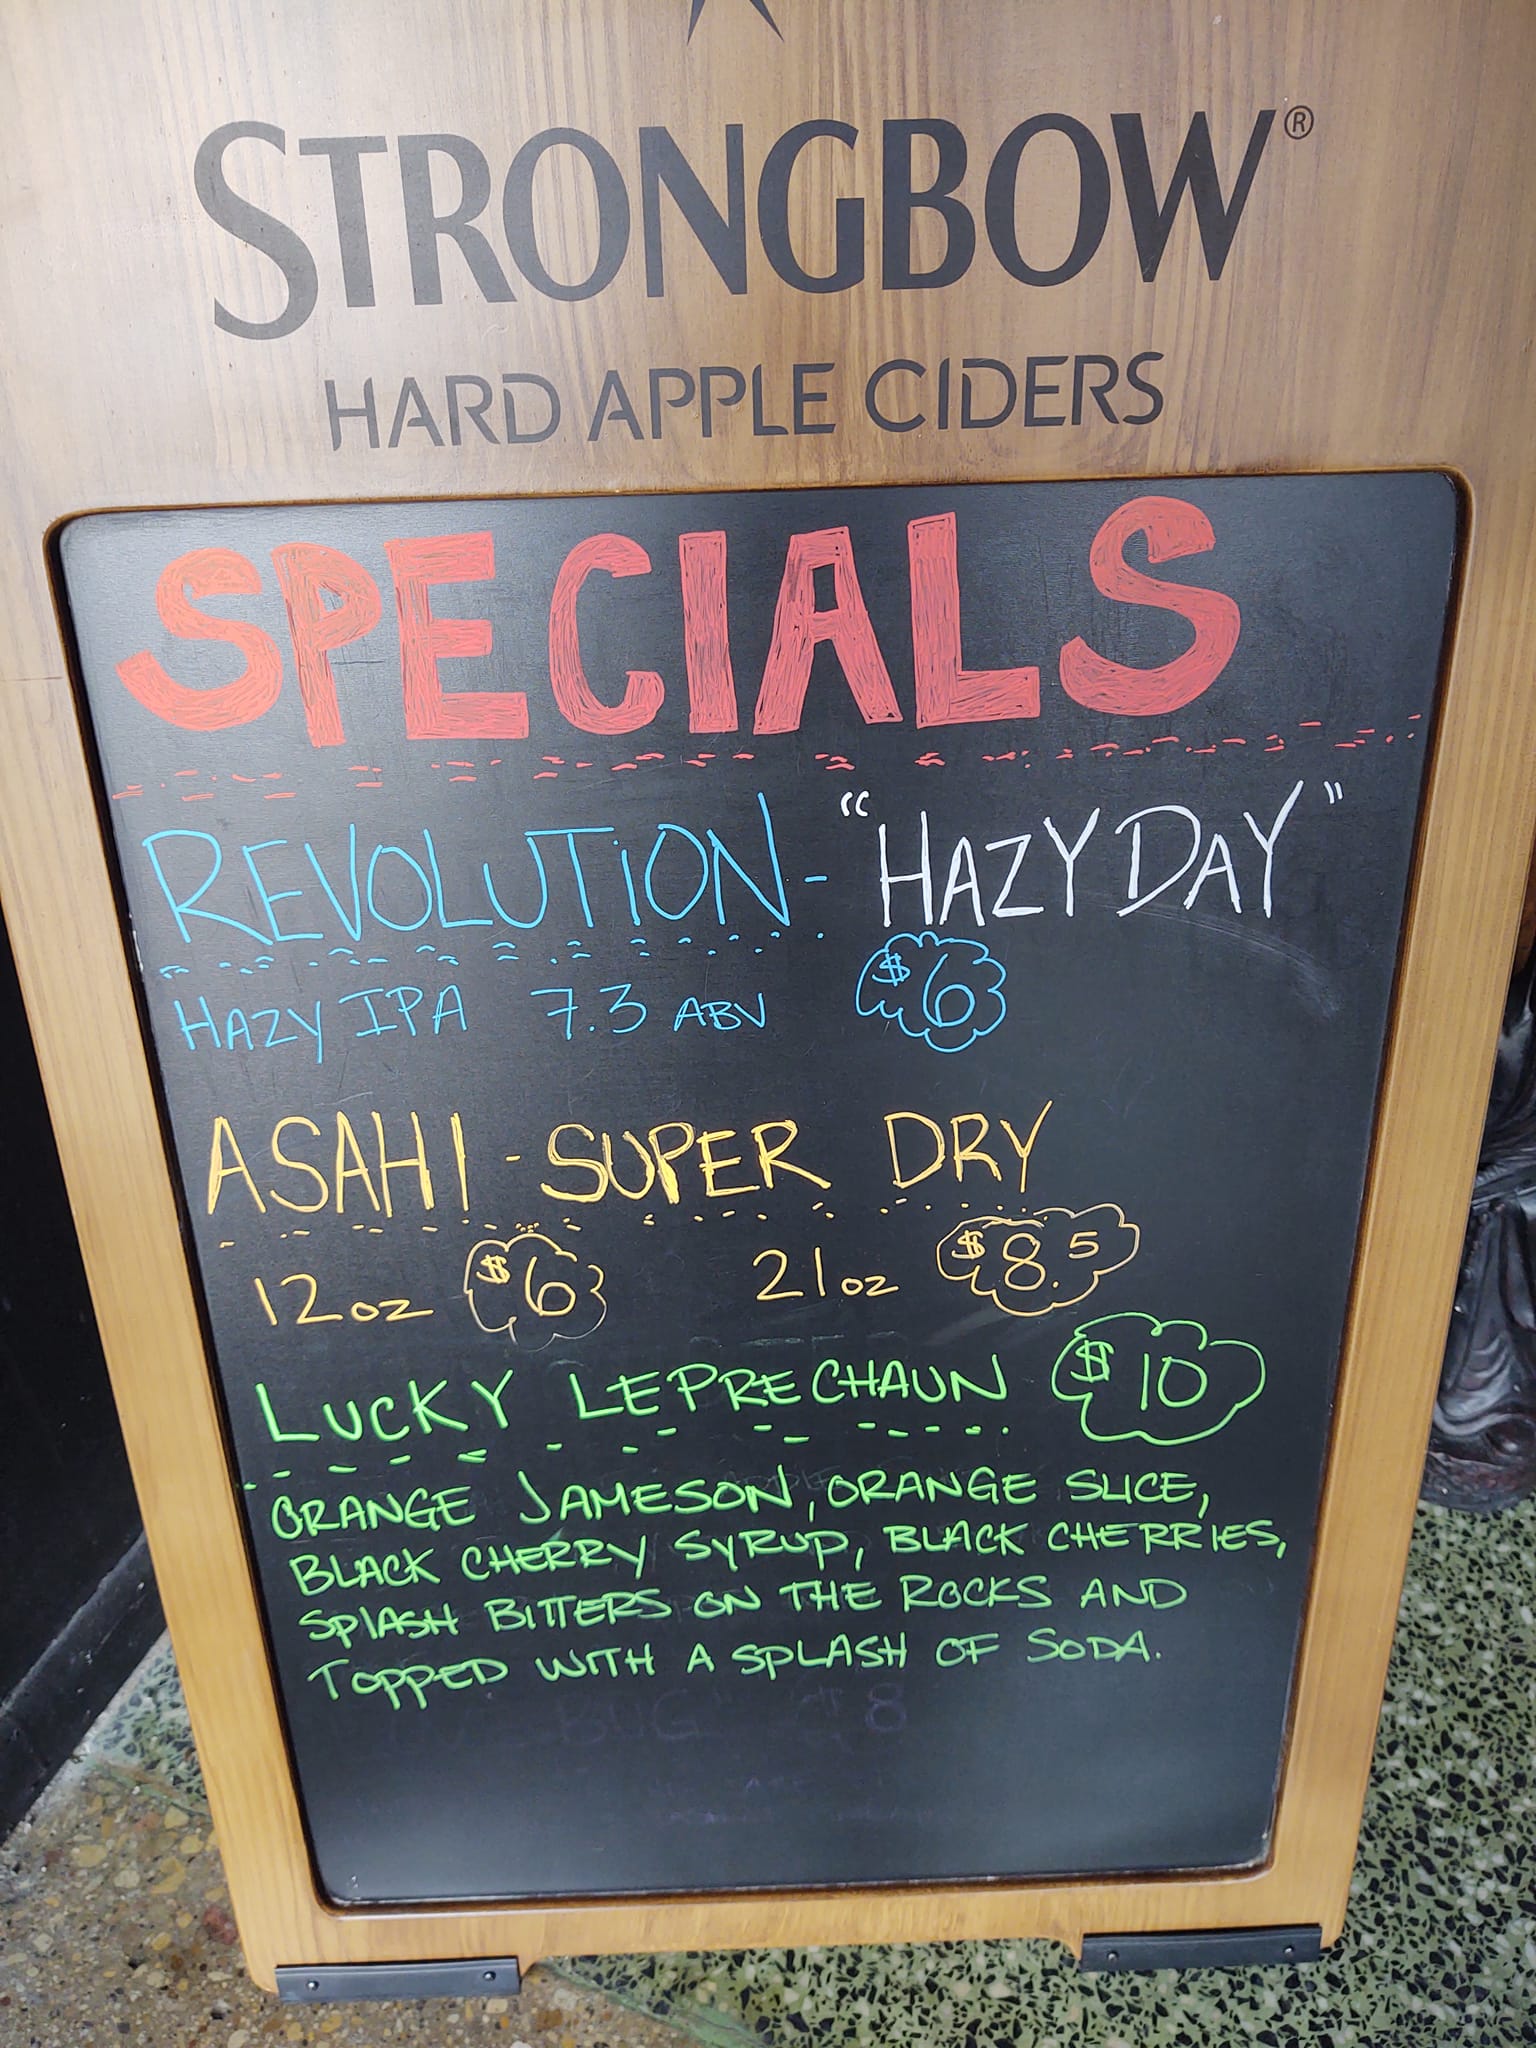 STRONGBOW®
HARD APPLE CIDERS
SPECIALS
REVOLUTION - "HAZY DAY"
HAZY IPA 7.3 ABV $6
ASAHI - SUPER DRY
12oz $6 21oz $8.5
LUCKY LEPRECHAUN $10
ORANGE JAMESON, ORANGE SLICE,
BLACK CHERRY SYRUP, BLACK CHERRIES,
SPLASH BITTERS ON THE ROCKS AND
TOPPED WITH A SPLASH OF SODA.
BUG" $8